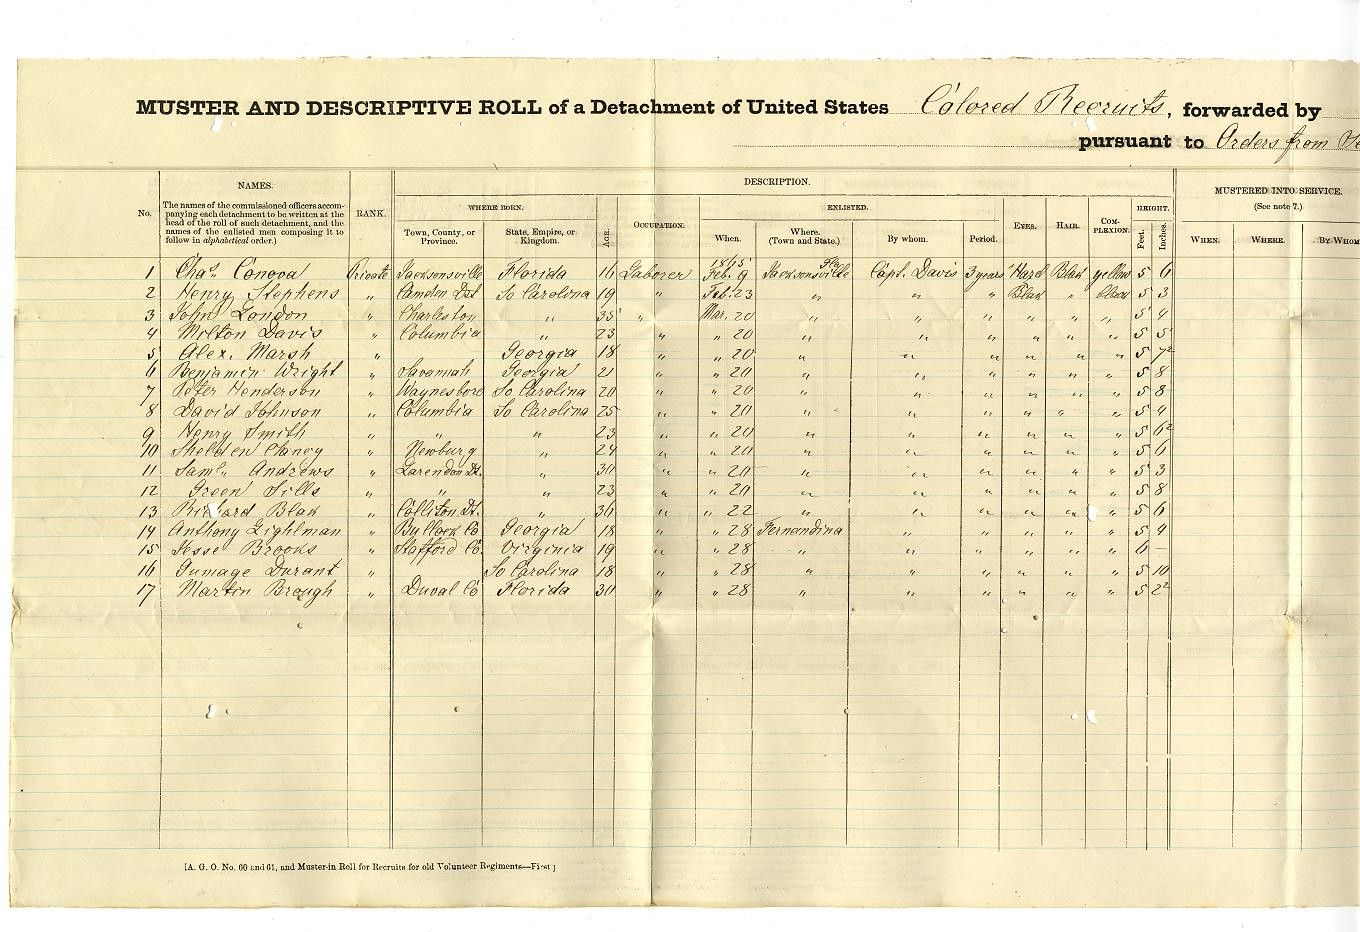 MUSTER AND DESCRIPTIVE ROLL of a Detachment of United States Colored Recruits, forwarded by
pursuant to Orders from
DESCRIPTION.
NAMES.
MUSTERED INTO SERVICE.
(See note 7.)
No.
The names of the commissioned officers accompanying each detachment to be written at the head of the roll of such detachment, and the names of the enlisted men composing it to follow in alphabetical order.)
RANK.
WHERE BORN.
Town, County, or Province.
State, Empire, or Kingdom.
AGE.
OCCUPATION.
ENLISTED.
When.
Where. (Town and State.)
By whom.
Period.
EYES.
HAIR.
COMPLEXION.
HEIGHT.
Feet.
Inches.
WHEN.
WHERE.
BY WHOM
1865 Fla
1 Chas. Conova Private Jacksonsville Florida 16 Laborer Feb. 9 Jacksonsville Capt. Davis 3 years Blak yellow 5 6
2 Henry Stephens " Camden Dst So Carolina 19 " Feb. 23 " " " Blak " 5 3
3 John London " Charleston " 35 " Mar. 20 " " " " " " 5 4
4 Milton Davis " Columbia " 23 " " 20 " " " " " " 5 5
5 Alex. Marsh " Georgia 18 " " 20 " " " " " " 5 7½
6 Benjamin Wright " Savannah Georgia 21 " " 20 " " " " " " 5 8
7 Peter Henderson " Waynesboro So Carolina 20 " " 20 " " " " " " 5 8
8 David Johnson " Columbia So Carolina 25 " " 20 " " " " " " 5 4
9 Henry Smith " " " 23 " " 20 " " " " " " 5 6½
10 Shelden " Newburg " 24 " " 20 " " " " " " 5 6
11 Saml. Andrews " Larendon Dt. " 30 " " 20 " " " " " " 5 3
12 Green Sills " " " 23 " " 20 " " " " " " 5 8
13 Richard Blak " Colliton Dt. " 36 " " 22 " " " " " 5 6
14 Anthony Lighlman " Bullock Co Georgia 18 " " 28 Fernandina " " " " " 5 9
15 Jesse Brooks " Stafford Co. Virginia 19 " " 28 " " " " " " 6 —
16 Gumage Durant " So Carolina 18 " " 28 " " " " " " 5 10
17 Martin Brough " Duval Co Florida 30 " " 28 " " " " " " 5 2½
[A. G. O. No. 60 and 61, and Muster-in Roll for Recruits for old Volunteer Regiments—First]